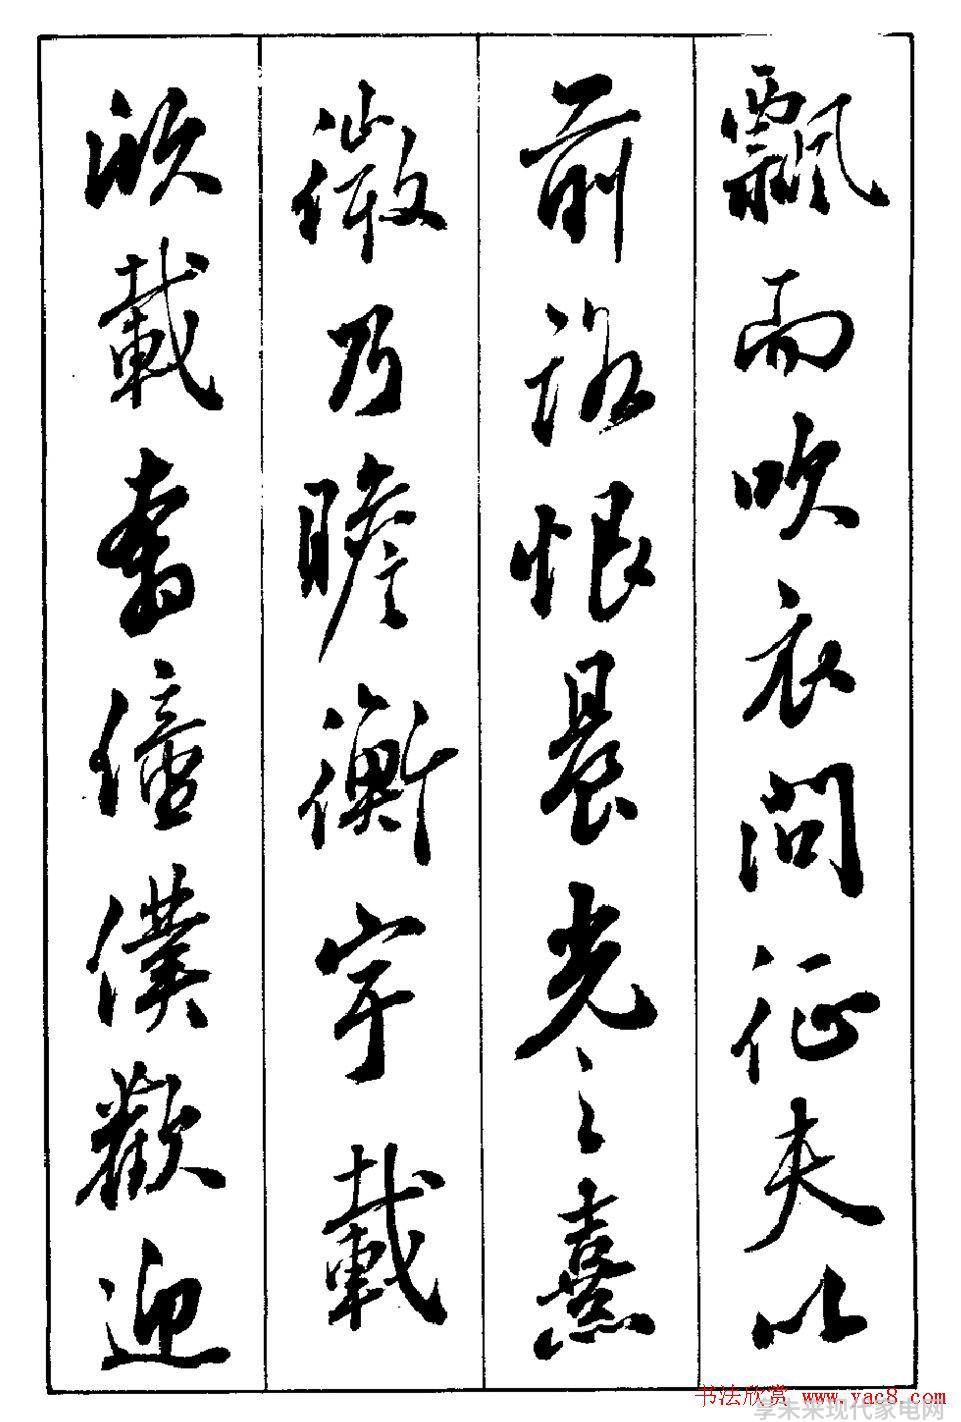 飄而吹衣問征夫以
前路恨晨光之熹
微乃瞻衡宇載
欣載奔僮僕歡迎
书法欣赏 www.yac8.com
享未来现代家电网